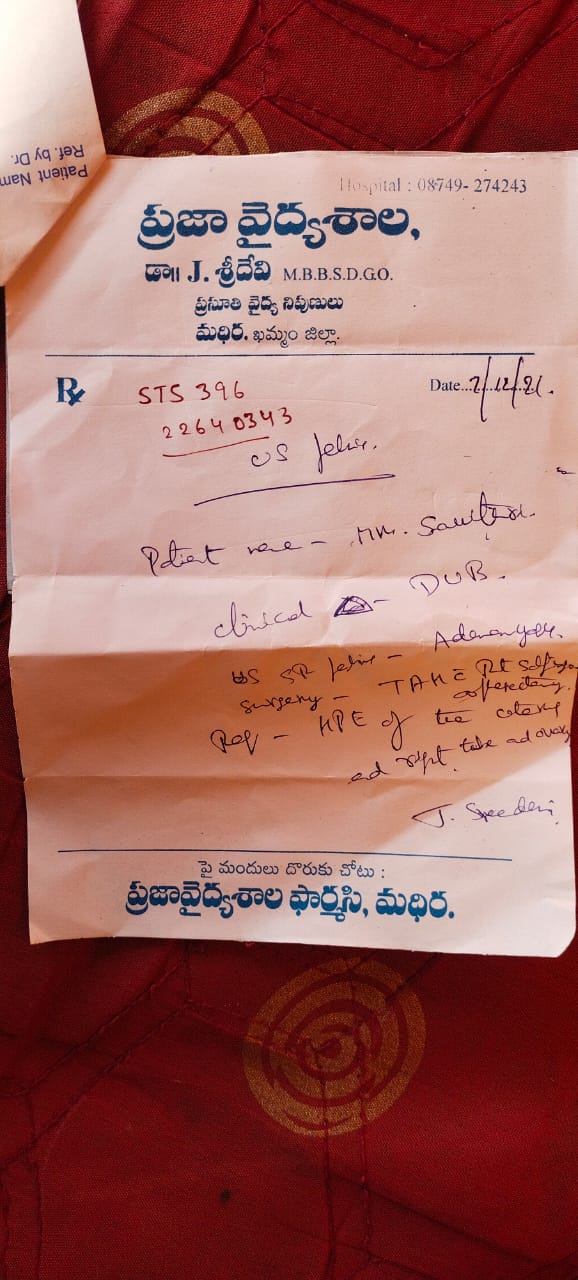 Patient Nam
Ref. by Dr.
Hospital : 08749- 274243
ప్రజా వైద్యశాల,
డా॥ J. శ్రీదేవి M.B.B.S.D.G.O.
ప్రసూతి వైద్య నిపుణులు
మధిర. ఖమ్మం జిల్లా.
Rx
Date.. 7/12/21.
STS 396
22640343
US
Patient name -
clinical - DUB.
US Pelvis -
surgery - TAH Rt
Req - HPE of the uterus
and right tube and ovary
J. Sreedevi
పై మందులు దొరుకు చోటు :
ప్రజావైద్యశాల ఫార్మసి, మధిర.